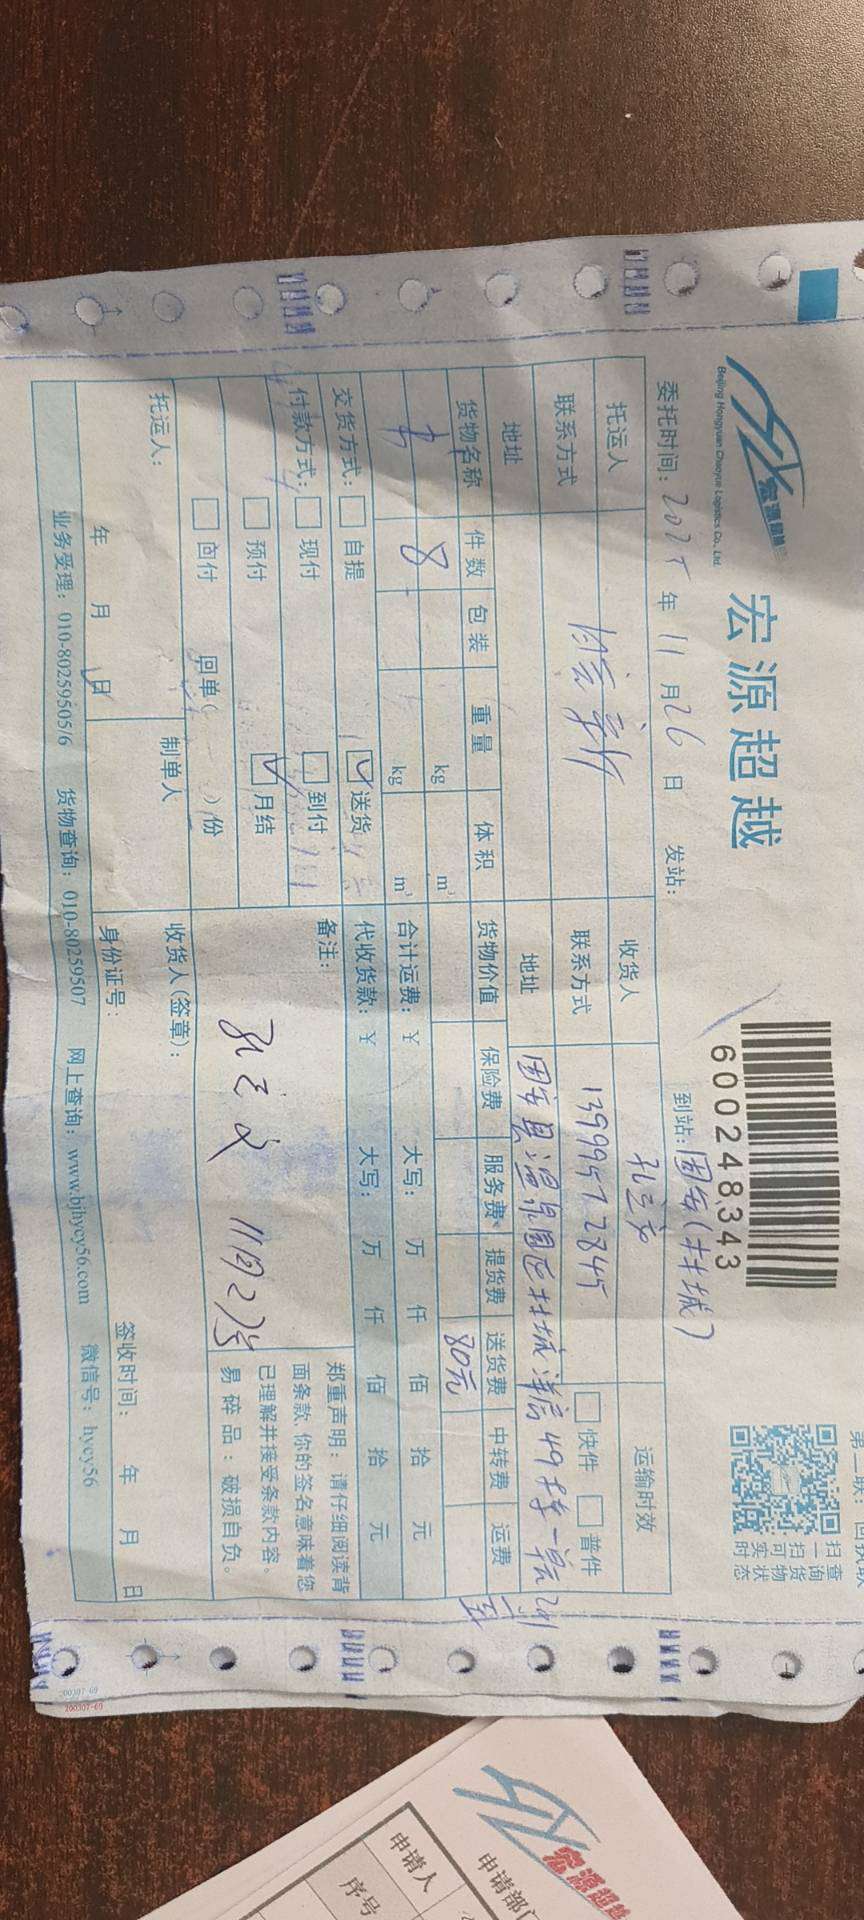 宏源超越
Beijing Hongyuan Chaoyue Logistics Co., Ltd.
宏源超越
6000248343
查询
扫一扫
可货物
实时状态
委托时间: 2025 年 11 月 26 日 发站: 到站: 固安(林城)
托运人 收货人 运输时效
联系方式 联系方式 13999572845 快件 普件
地址 地址 固安县温泉园区林城 49 一单元 201
货物名称 件数 包装 重量 体积 货物价值 保险费 服务费 提货费 送货费 中转费 运费
8 kg m³ 80元
kg m³ 合计运费: ¥ 大写: 万 仟 佰 拾 元
交货方式: 自提 送货 代收货款: ¥ 大写: 万 仟 佰 拾 元
付款方式: 现付 到付 备注: 郑重声明: 请仔细阅读背
预付 月结 面条款, 你的签名意味着您
已理解并接受条款内容。
回付 回单( )份 11月27号 易碎品: 破损自负。
托运人: 制单人 收货人(签章):
年 月 日 身份证号: 签收时间: 年 月 日
业务受理: 010-80259505/6 货物查询: 010-80259507 网上查询: www.bjhycy56.com 微信号: hycy56
200307-69
200307-69
宏源超越
申请部门
申请人
序号